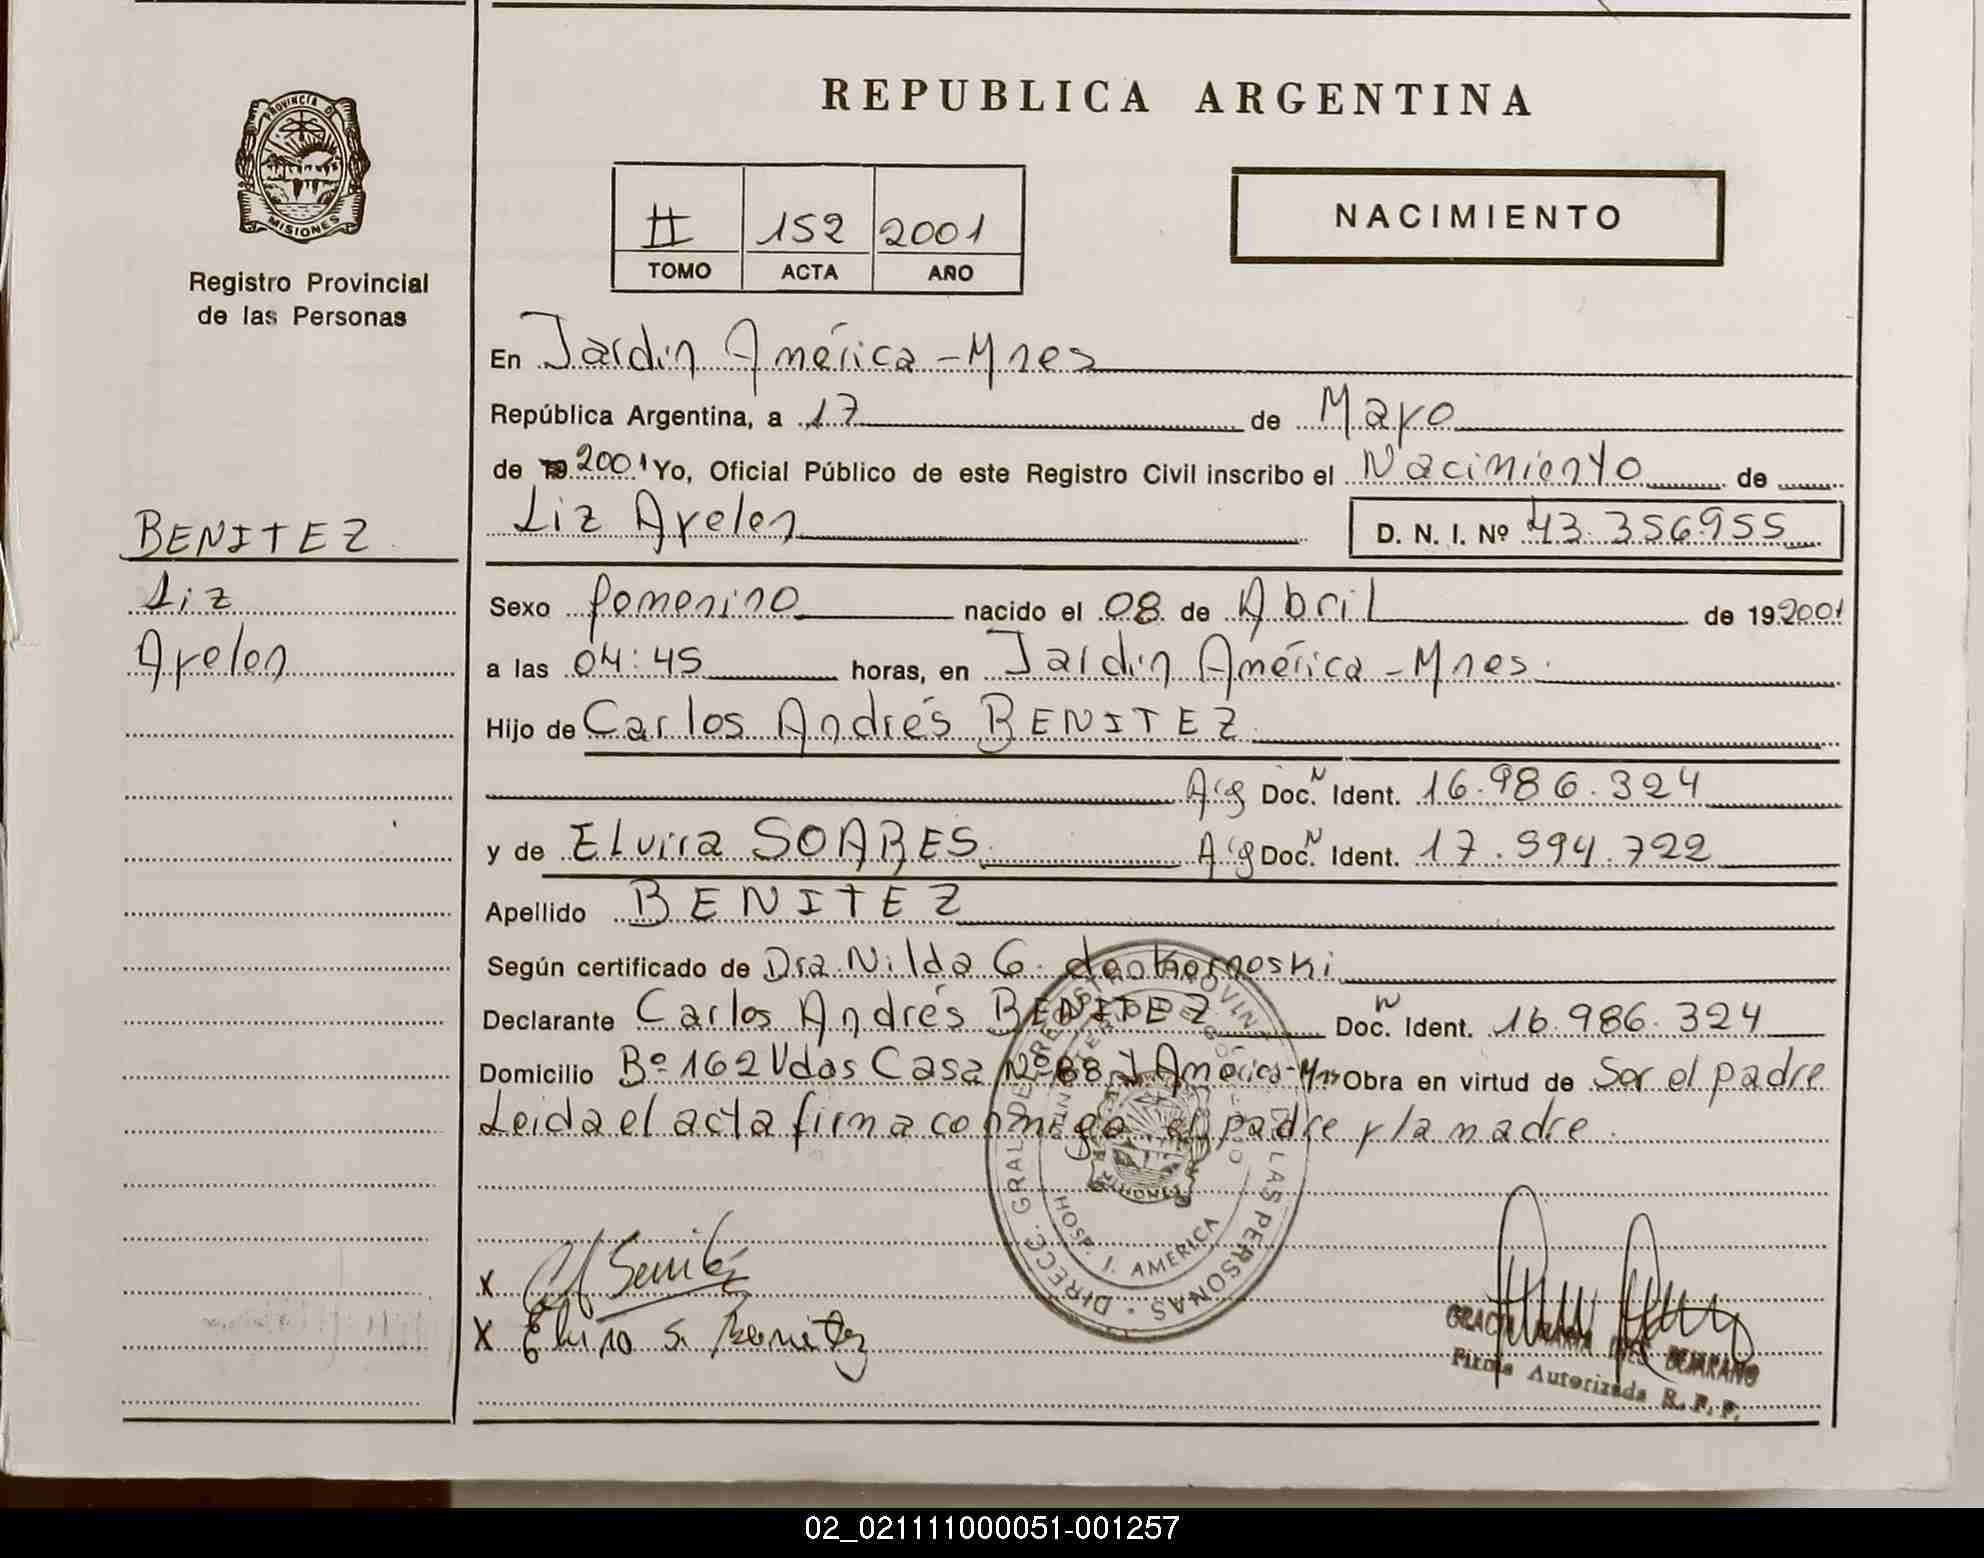 REPUBLICA ARGENTINA
PROVINCIA D
MISIONES
Registro Provincial
de las Personas
II 152 2001
TOMO ACTA AÑO
NACIMIENTO
En Jardin América - Mnes
República Argentina, a 17 de Mayo
de 19 2001 Yo, Oficial Público de este Registro Civil inscribo el Nacimiento de
Liz Ayelen D. N. I. Nº 43.356.955
BENITEZ
Liz
Ayelen
Sexo femenino nacido el 08 de Abril de 19 2001
a las 04:45 horas, en Jardin América - Mnes.
Hijo de Carlos Andrés BENITEZ
Arg Doc. N Ident. 16.986.324
y de Elvira SOARES Arg Doc. N Ident. 17.594.722
Apellido BENITEZ
Según certificado de Dra Nilda G.
Declarante Carlos Andrés BENITEZ Doc. N Ident. 16.986.324
Domicilio Bº 162 Vdas Casa Nº 88 J América - Mns Obra en virtud de Ser el padre
Leida el acta firma conmigo el padre y la madre.
DIRECC. GRAL DEL REGISTRO PROVIN LAS PERSONAS
HOSP. J. AMERICA
MISIONES
X
X Elvira S. Benitez
BEJARANO
Firma Autorizada R. P. P.
02_021111000051-001257